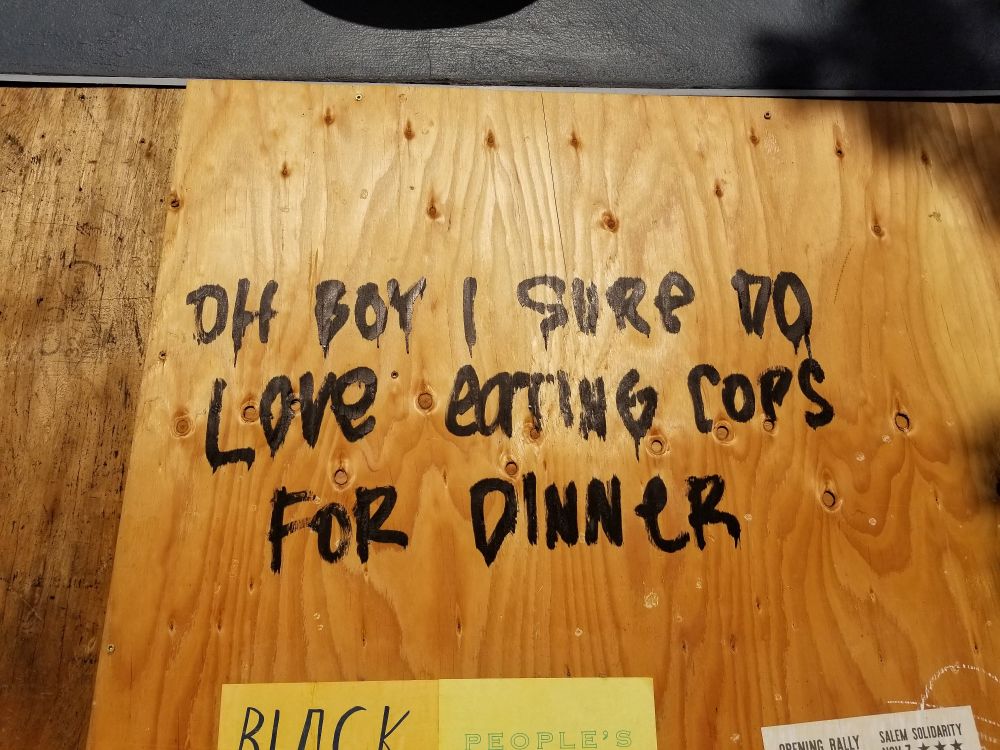 OH BOY I SURE DO
LOVE EATING COPS
FOR DINNER
BLACK
PEOPLE'S
OPENING RALLY
SALEM SOLIDARITY